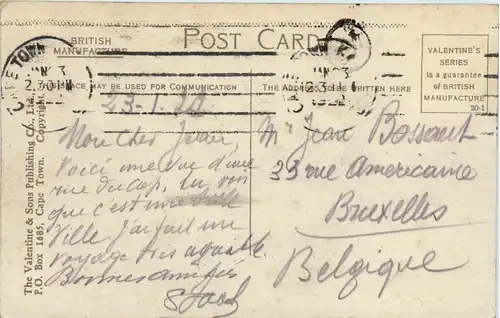 BRITISH
MANUFACTURE
POST CARD
VALENTINE'S
SERIES
is a guarantee
of BRITISH
MANUFACTURE
20-1
CAPE TOWN
2.30 PM
MAY BE USED FOR COMMUNICATION
THE ADDRESS TO BE WRITTEN HERE
The Valentine & Sons Publishing Co., Ltd.,
P.O. Box 1685, Cape Town. Copyright
Mon Cher Jean,
Voici une vue d'une
rue du Cap, tu vois
que c'est une belle
Ville. J'ai fait un
voyage très agréable
Bonnes amitiés
Mr Jean Bossaut
33 rue Americaine
Bruxelles
Belgique